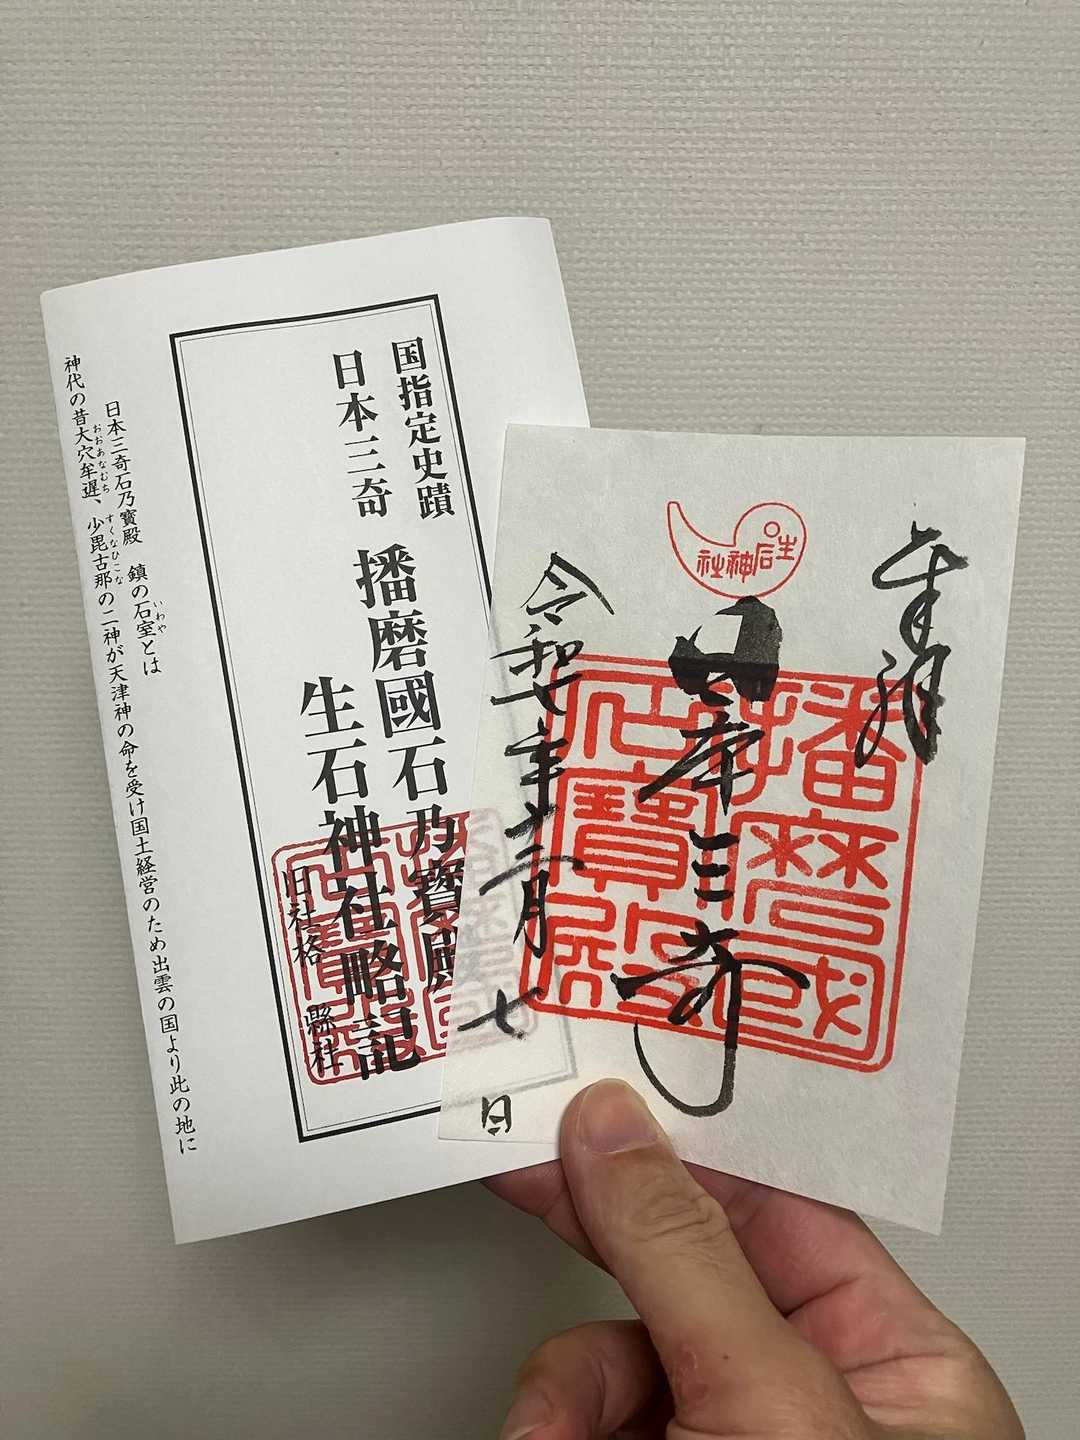 国指定史蹟
日本三奇
播磨國石乃寶殿
生石神社略記
旧社格 縣社
日本三奇石乃寶殿 鎮の石室とは
いわや
神代の昔大穴牟遅、少毘古那の二神が天津神の命を受け国土経営のため出雲の国より此の地に
おおあなむち
すくなひこな
奉拝
生石神社
日本三奇
播磨國
石乃寶殿
令和七年十二月七日